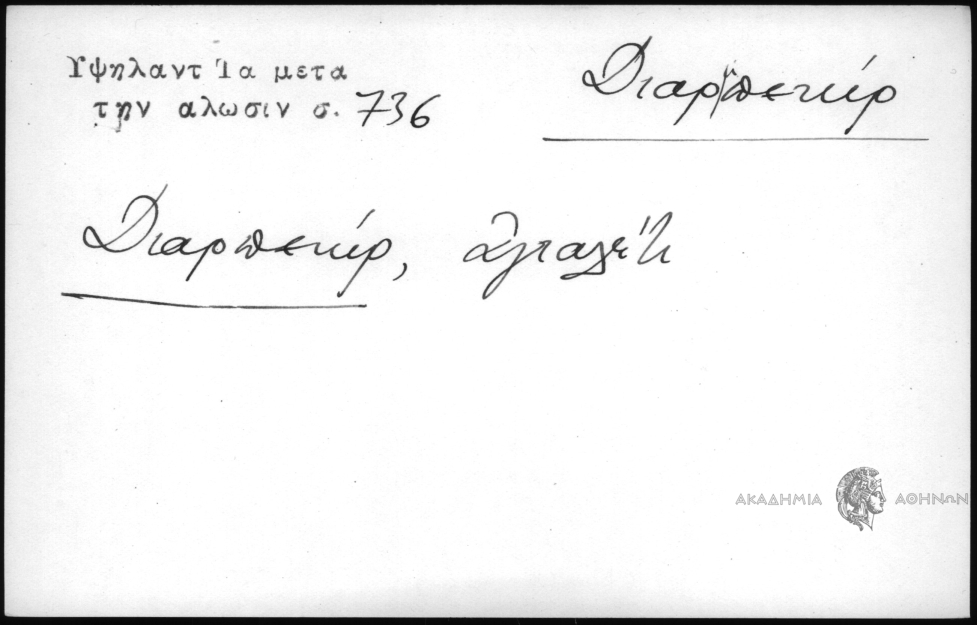 Υψηλαντ Ἰα μετα
την αλωσιν σ. 736
Διαρπεκίρ
Διαρπεκίρ,
ΑΚΑΔΗΜΙΑ ΑΘΗΝΩΝ